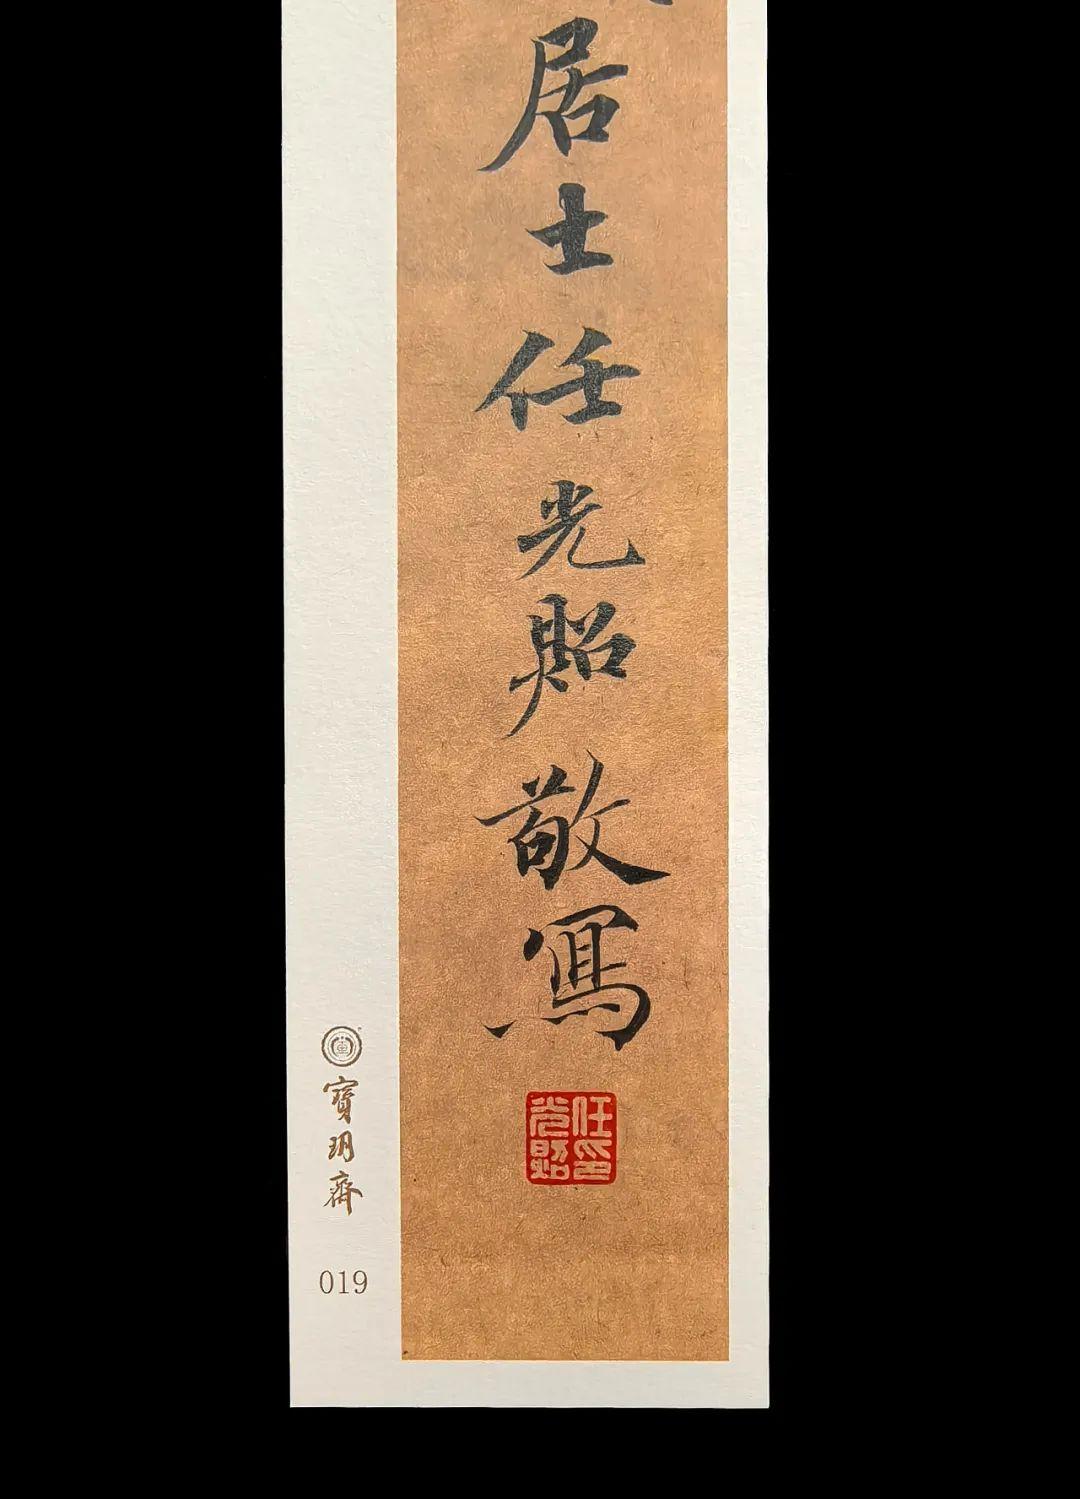 居士任光照敬寫
任印
光照
寶玥齋
019